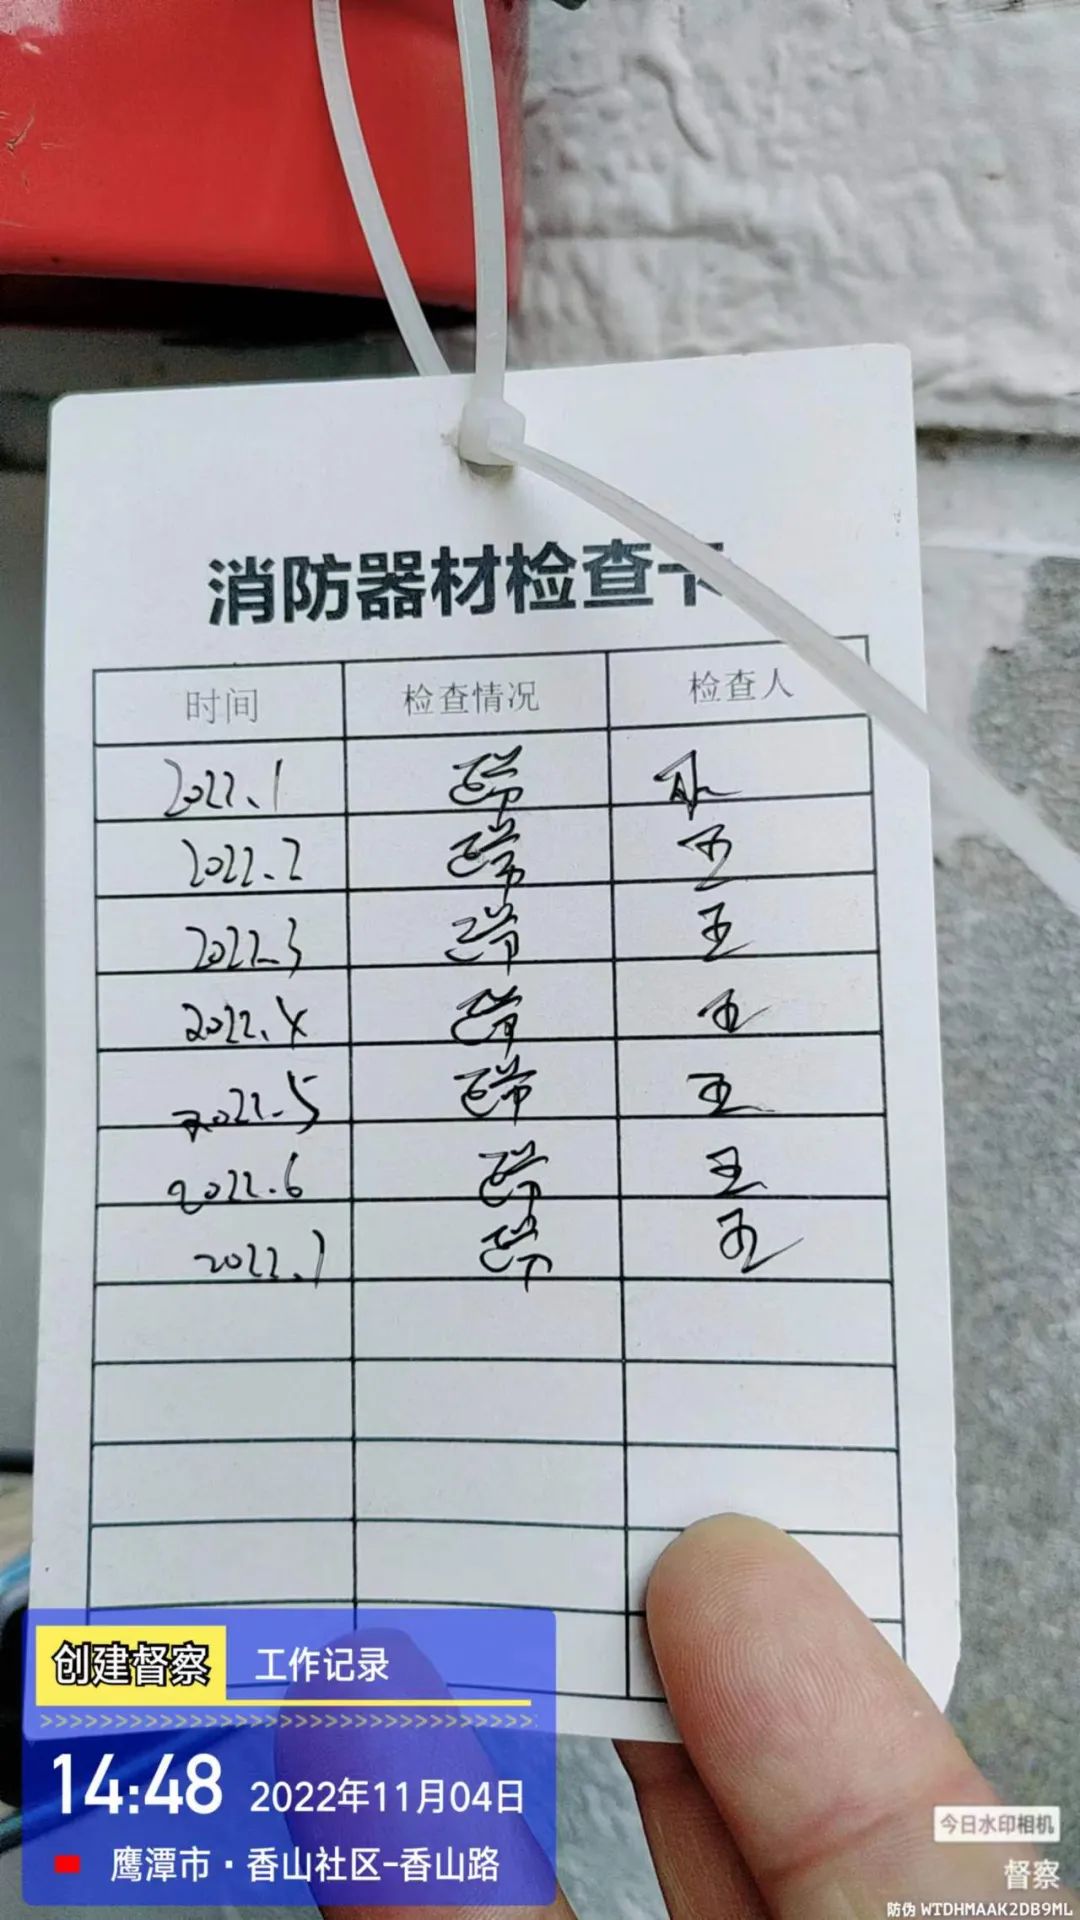 消防器材检查卡
时间 检查情况 检查人
2022.1 正常
2022.2 正常 王
2022.3 正常 王
2022.4 正常 王
2022.5 正常 王
2022.6 正常 王
2022.7 正常 王
创建督察 工作记录
14:48 2022年11月04日
鹰潭市·香山社区-香山路
今日水印相机
督察
防伪 WTDHMAAK2DB9ML